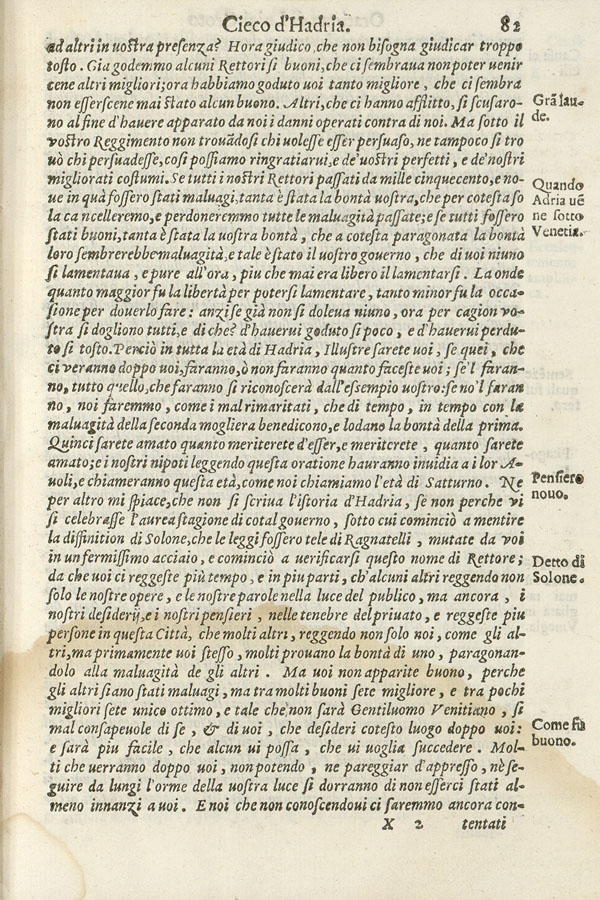 Cieco d'Hadria. 82
ad altri in uostra presenza? Hora giudico, che non bisogna giudicar troppo
tosto. Gia godemmo alcuni Rettori sì buoni, che ci sembraua non poter uenir
cene altri migliori; ora habbiamo goduto uoi tanto migliore, che ci sembra
non esserscene mai stato alcun buono. Altri, che ci hanno afflitto, si scusaro-
no al fine d'hauere apparato da noi i danni operati contra di noi. Ma sotto il
vostro Reggimento non trouādosi chi uolesse esser persuaso, ne tampoco si tro
uò chi persuadesse, così possiamo ringratiarui, e de' uostri perfetti, e de' nostri
migliorati costumi. Se tutti i nostri Rettori passati da mille cinquecento, e no-
ue in quà fossero stati maluagi, tanta è stata la bontà uostra, che per cotesta so
la cancelleremo, e perdoneremmo tutte le maluagità passate; e se tutti fossero
stati buoni, tanta è stata la uostra bontà, che a cotesta paragonata la bontà
loro sembrerebbe maluagità, e tale è stato il uostro gouerno, che di uoi niuno
si lamentaua, e pure all'ora, piu che mai era libero il lamentarsi. La onde
quanto maggior fu la libertà per potersi lamentare, tanto minor fu la occa-
sione per douerlo fare: anzi se già non si doleua niuno, ora per cagion vo-
stra si dogliono tutti, e di che? d'hauerui goduto sì poco, e d'hauerui perdu-
to sì tosto. Perciò in tutta la età di Hadria, Illustre sarete uoi, se quei, che
ci veranno doppo uoi, faranno, ò non faranno quanto faceste uoi; se'l faran-
no, tutto quello, che faranno si riconoscerà dall'essempio uostro: se no'l faran
no, noi faremmo, come i mal rimaritati, che di tempo, in tempo con la
maluagità della seconda mogliera benedicono, e lodano la bontà della prima.
Quinci sarete amato quanto meriterete d'esser, e meritcrete, quanto sarete
amato; e i nostri nipoti leggendo questa oratione hauranno inuidia a i lor A-
uoli, e chiameranno questa età, come noi chiamiamo l'età di Satturno. Ne
per altro mi spiace, che non si scriua l'istoria d'Hadria, se non perche vi
si celebrasse l'aurea stagione di cotal gouerno, sotto cui cominciò a mentire
la diffinition di Solone, che le leggi fossero tele di Ragnatelli, mutate da voi
in un fermissimo acciaio, e cominciò a uerificarsi questo nome di Rettore;
da che uoi ci reggeste più tempo, e in piu parti, ch'alcuni altri reggendo non
solo le nostre opere, e le nostre parole nella luce del publico, ma ancora, i
nostri desiderij, e i nostri pensieri, nelle tenebre del priuato, e reggeste piu
persone in questa Città, che molti altri, reggendo non solo noi, come gli al-
tri, ma primamente uoi stesso, molti prouano la bontà di uno, paragonan-
dolo alla maluagità de gli altri. Ma uoi non apparite buono, perche
gli altri siano stati maluagi, ma tra molti buoni sete migliore, e tra pochi
migliori sete unico ottimo, e tale che non sarà Gentiluomo Venitiano, sì
mal consapeuole di se, & di uoi, che desideri cotesto luogo doppo uoi:
e sarà piu facile, che alcun ui possa, che ui uoglia succedere. Mol-
ti che uerranno doppo uoi, non potendo, ne pareggiar d'appresso, nè se-
guire da lungi l'orme della uostra luce si dorranno di non esserci stati al-
meno innanzi a uoi. E noi che non conoscendoui ci saremmo ancora con-
X 2 tentati
Grā lau-
de.
Quando
Adria uē
ne sotto
Venetia.
Pensiero
nouo.
Detto di
Solone.
Come fù
buono.